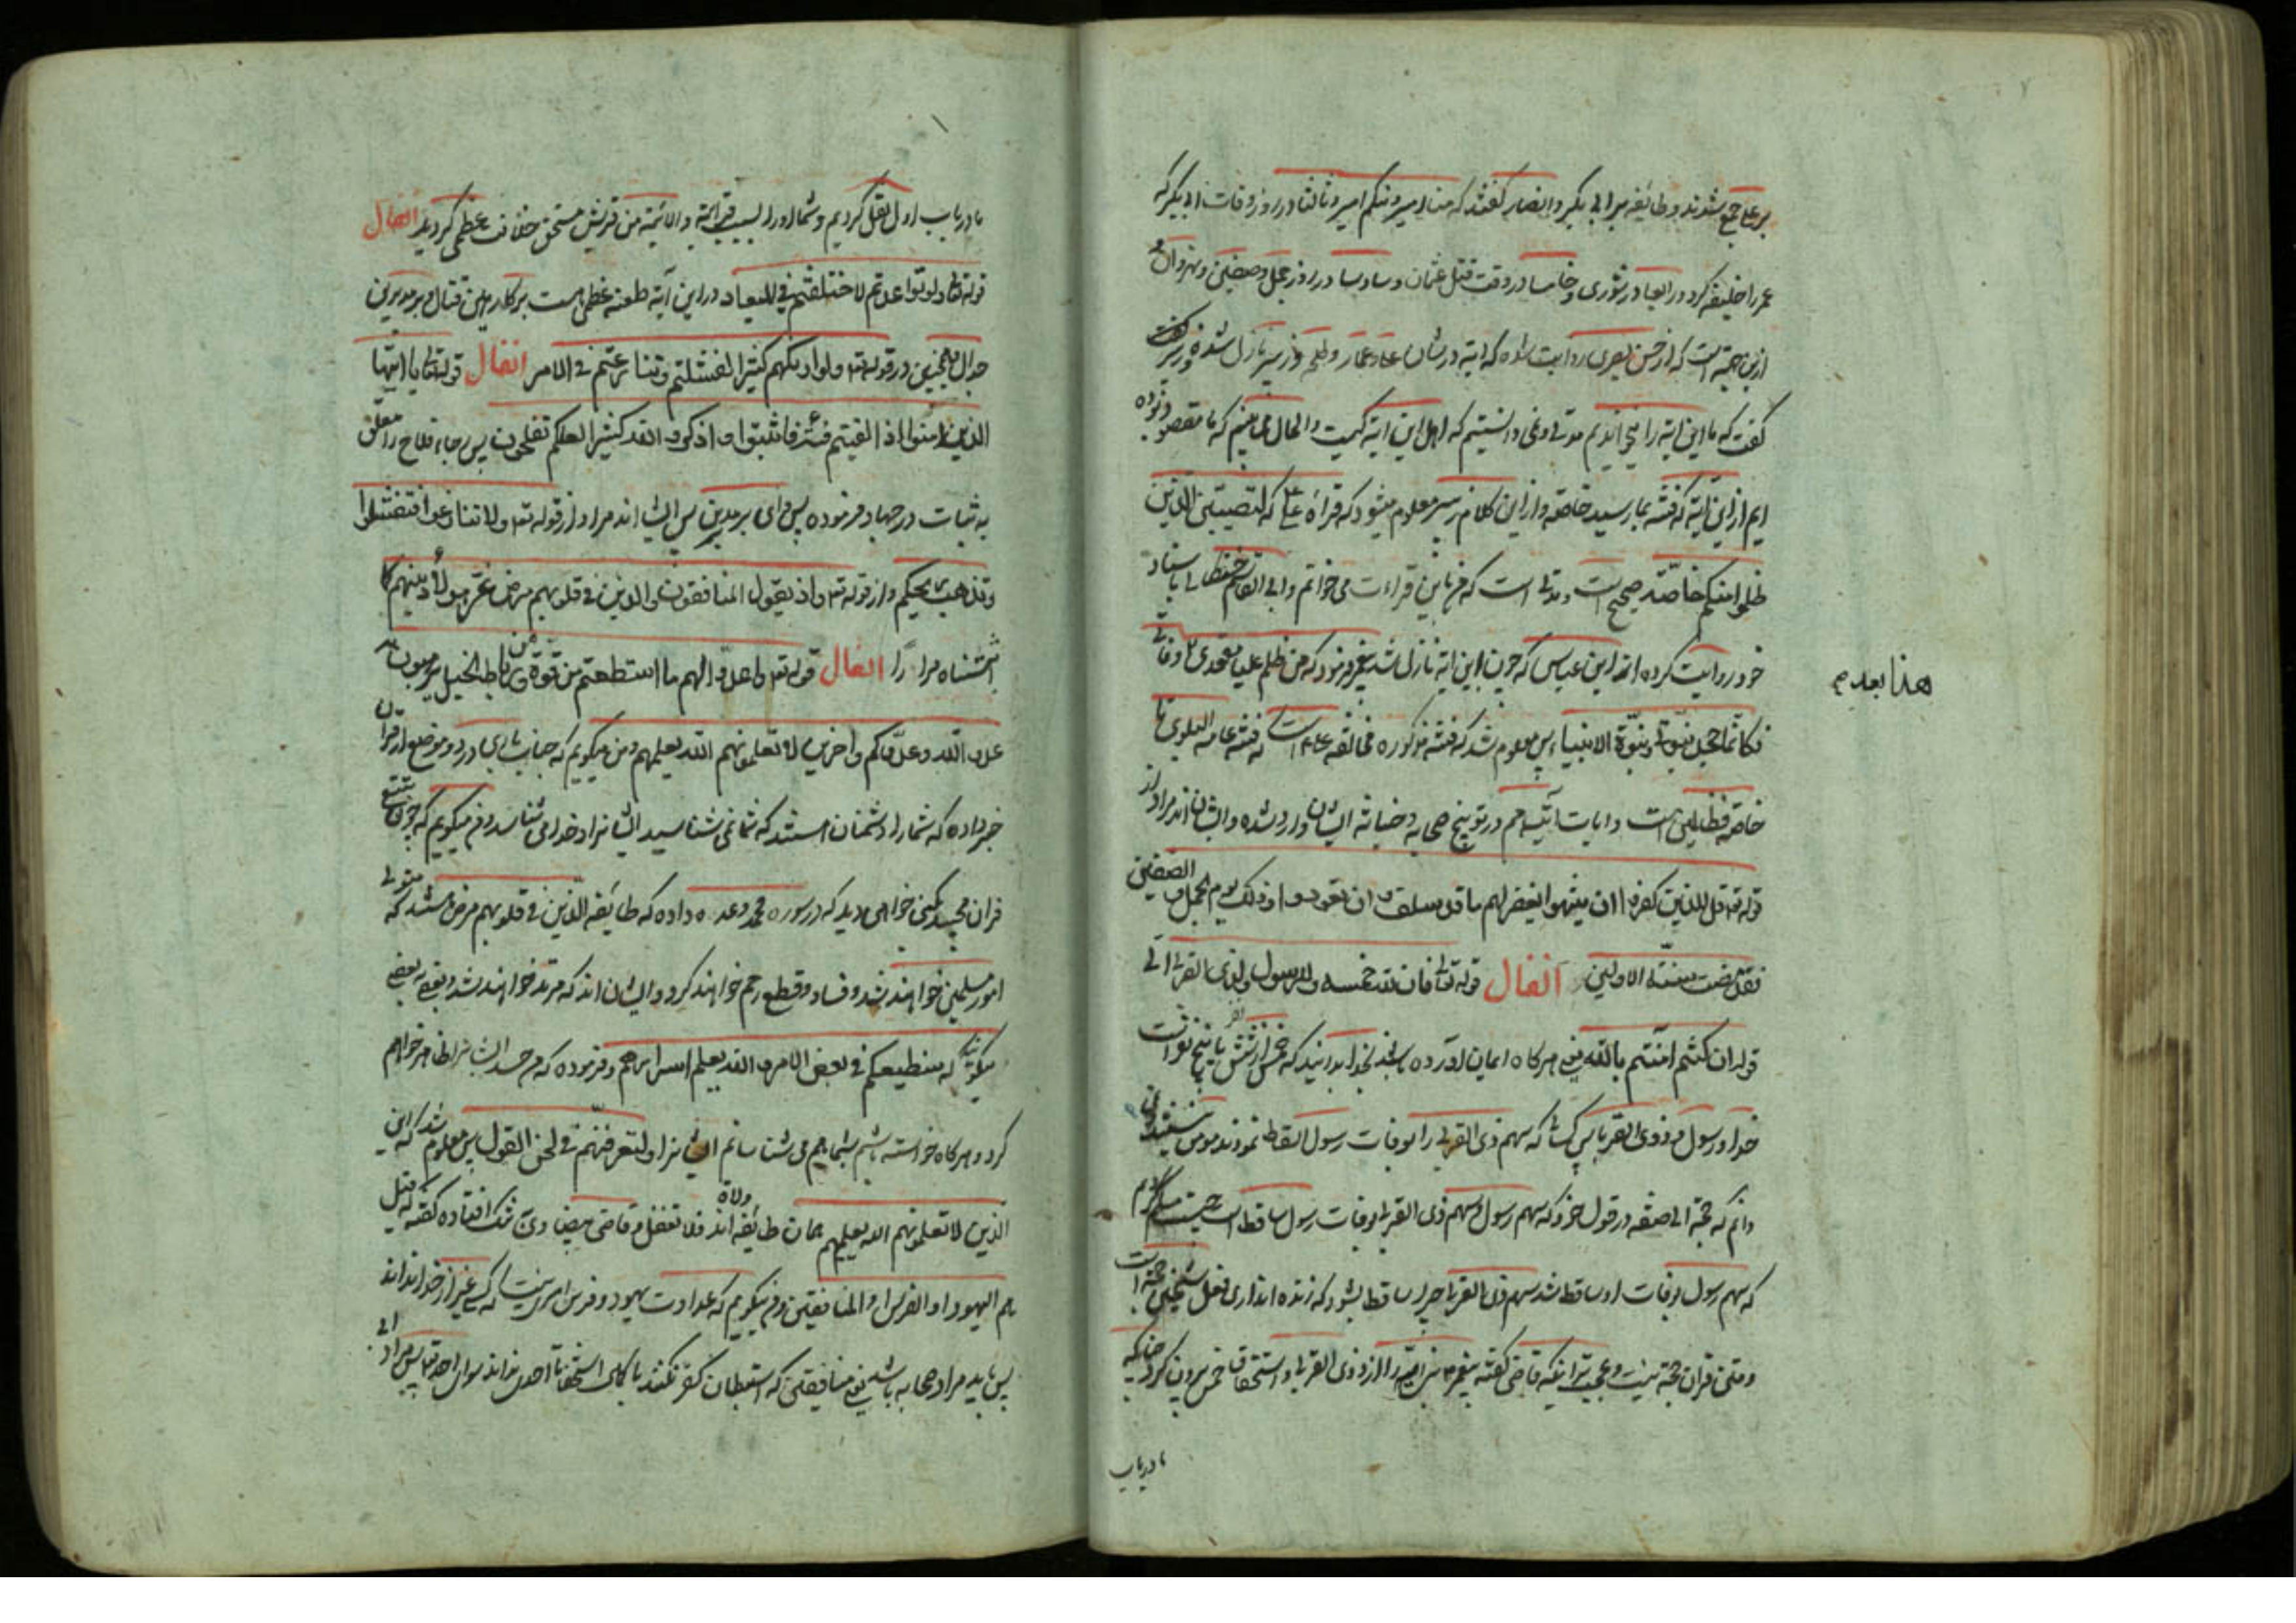 بر علی جمع شدند و طایفه بر ابی بکر و انصار گفتند که منا امیر و منکم امیر و ثالثا در روز وفات ابی بکر که
عمر را خلیفه کرد و رابعا در شوری و خامسا در وقت قتل عثمان و سادسا در روز جمل و صفین و نهروان و
ازین جهتست که از حسن بصری روایت شده که ایه در شان علی و عمار و طلحه و زبیر نازل شده و زبیر گفت
گفت که ما این ایه را میخواندیم مدتی و نمی دانستیم که اهل این ایه کیست والحال می بینم که ما مقصود بوده
ایم ازین ایه که فتنه بما رسید خاصه و از این کلام زبیر معلوم میشود که قراة علی که لتصیبن الذین
ظلموا منکم خاصة صحیح است و مدتی است که من باین قراءت می خوانم و ابی القاسم باسناد
خود روایت کرده از ابن عباس که چون این ایه نازل شد پیغمبر فرمود که من ظلم علیا مقعدی بعد وفاتی
هذا بعد
فکانما جحد نبوتی و نبوة الانبیاء پس معلوم شد که فتنه مذکوره مخالفه علی است نه فتنه عامة البلوی
خاصه فقط است و ایات آتیه هم در توبیخ صحابه و خیانة ایشان وارد شده و ایشان اند مراد از
قوله تعه قل للذین کفروا ان ینتهوا یغفر لهم ما قد سلف و ان یعودوا و ذلک یوم الجمل و الصفین
فقد مضت سنة الاولین انفال قوله تعالی فان لله خمسه وللرسول ولذی القربی الی
قوله ان کنتم امنتم بالله یعنی هرکاه ایمان اورده باشید بخدا بدانید که خمس از شش یا پنج
خدا و رسول و ذوی القربی پس کسانی که سهم ذی القربی را بوفات رسول اسقاط نمودند مومن نیستند
دانم که حجة ابی حنیفه در قول خود که سهم رسول و سهم ذی القربی بوفات رسول ساقط است چیست
که سهم رسول بوفات او ساقط شد سهم ذی القربی چرا ساقط بشود که زنده اند اری فعل شیخین حجة است
و متن قران حجة نیست و عجیب تر اینکه قاضی گفته پیغمبر بنی امیه را از ذوی القربی و استحقاق خمس بیرون کرد چنانکه
ما در باب
ما در باب اول نقل کردیم و شما او را بسبب قرابة و الائمة من قریش مستحق خلافت عظمی کردید انفال
قوله تعالی ولو تواعدتم لاختلفتم فی المیعاد در این آیه طعنه عظمی هست بر کارهین قتال و مدبرین
قوله تعه ولو اریکهم کثیرا لفشلتم و تنازعتم فی الامر انفال قوله تعالی یا ایها
الذین امنوا اذا لقیتم فئة فاثبتوا و اذکروا الله کثیرا لعلکم تفلحون پس رجاء فلاح را معلق
به ثبات در جهاد فرموده پس وای بر مدبرین پس ایشان اند مراد از قوله تعه ولا تنازعوا فتفشلوا
وتذهب ریحکم و از قوله تعه و اذ یقول المنافقون والذین فی قلوبهم مرض غر هؤلاء دینهم
انفال قوله تعه واعدوا لهم ما استطعتم من قوة و من رباط الخیل ترهبون به
عدو الله وعدوکم واخرین لا تعلمونهم الله یعلمهم و من میکویم که جناب باری در دو موضع از قران
خبر داده که شما را دشمنان هستند که شما نمی شناسید ایشانرا و خدا می شناسد و من میکویم که چون تتبع
قران مجید بکنی خواهی دید که در سوره محمد وعده داده که طایفه الذین فی قلوبهم مرض هستند که متولی
امور مسلمین خواهند شد و فساد و قطع رحم خواهند کرد و ایشان اند که مرتد خواهند شد و بعضی به بعضی
میکویند که سنطیعکم فی بعض الامر و الله یعلم اسرارهم و فرموده که من حسد ایشانرا ظاهر خواهم
کرد و هرکاه خواسته باشم بشما هم می شناسانم ایشانرا و لتعرفنهم فی لحن القول پس معلوم شد که این
الذین لا تعلمونهم الله یعلمهم همان طایفه اند ولاة فلا تغفل و قاضی بیضاوی بشک افتاده گفته که قیل
هم الیهود او الفرس او المنافقین و من میکویم که عداوت یهود و فرس امری نیست که کسی غیر از خدا نداند
پس باید مراد صحابه باشد یعنی منافقین که استبطان کفر نکنند احدی نداند سوای احد تعه پس مراد